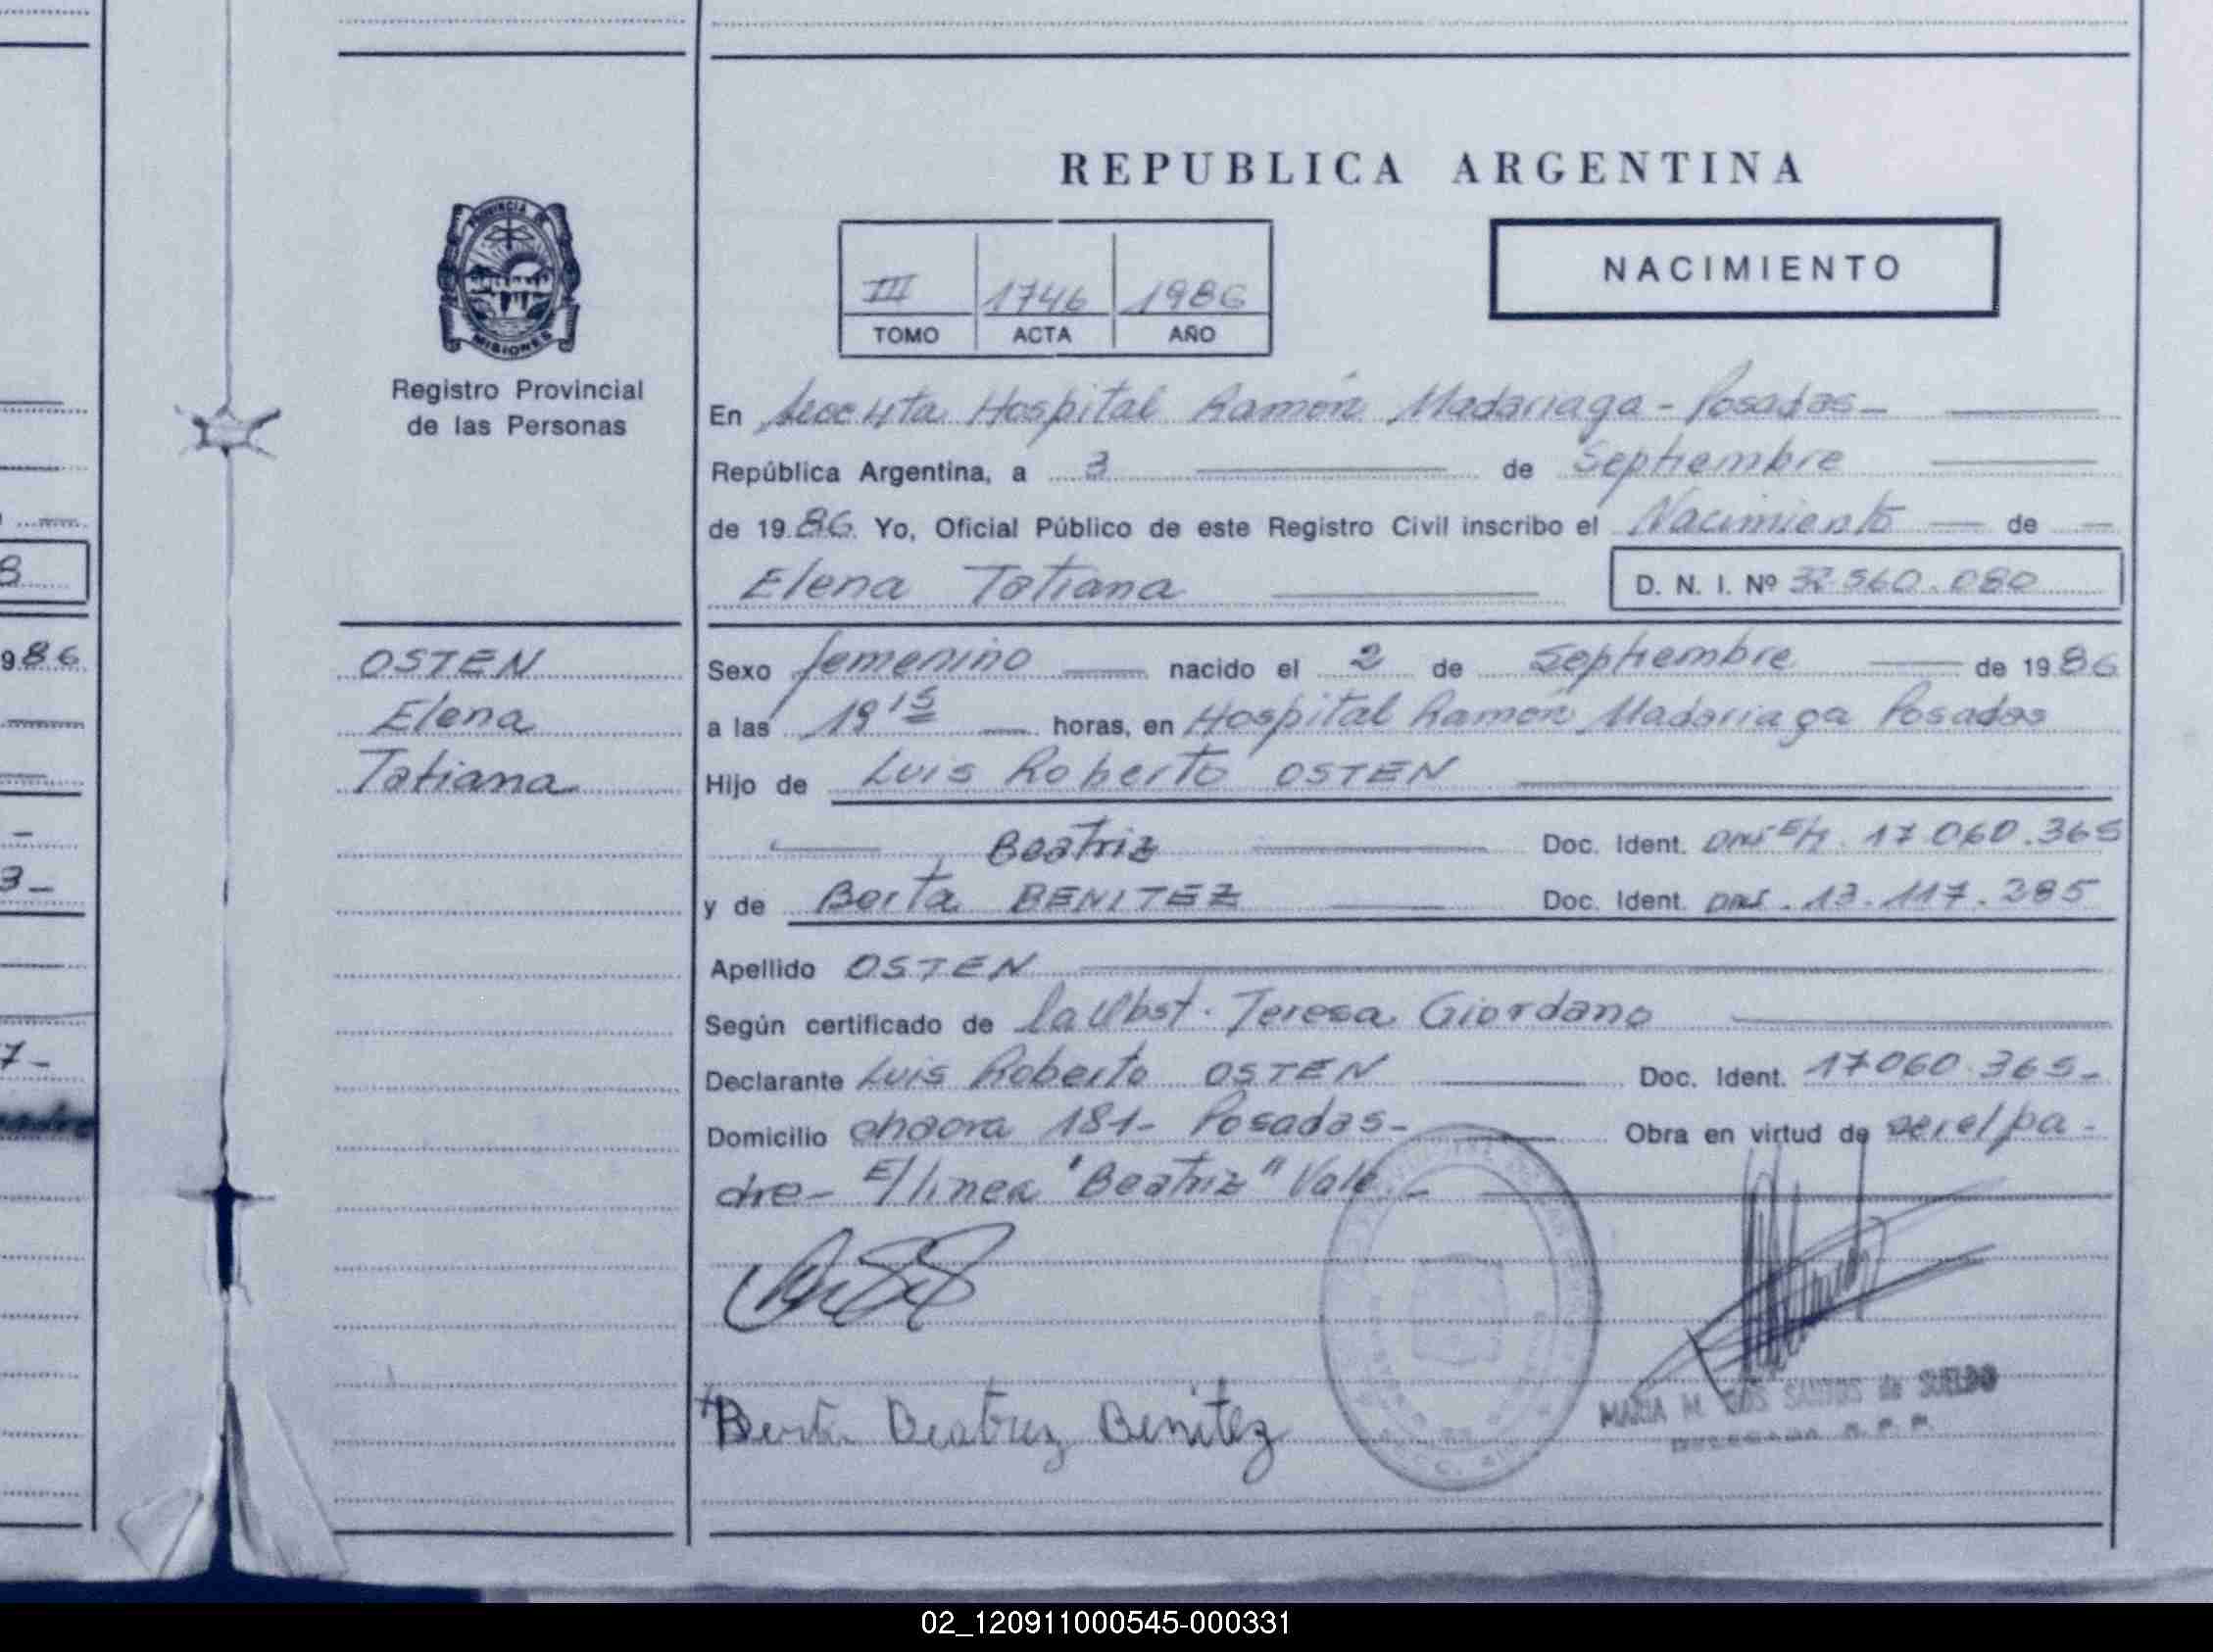 REPUBLICA ARGENTINA
PROVINCIA DE
MISIONES
Registro Provincial
de las Personas
III 1746 1986
TOMO ACTA AÑO
NACIMIENTO
En Hospital Ramón Madariaga - Posadas -
República Argentina, a 3 de Septiembre
de 1986. Yo, Oficial Público de este Registro Civil inscribo el Nacimiento de
Elena Tatiana D. N. I. Nº 32.560.080
OSTEN
Elena
Tatiana
Sexo femenino nacido el 2 de Septiembre de 1986
a las 19 15 horas, en Hospital Ramón Madariaga Posadas
Hijo de Luis Roberto OSTEN
Beatriz Doc. Ident. DNI E/t. 17.060.365
y de Berta BENITEZ Doc. Ident. DNI. 13.117.285
Apellido OSTEN
Según certificado de la Obst. Teresa Giordano
Declarante Luis Roberto OSTEN Doc. Ident. 17060.365-
Domicilio chacra 181- Posadas- Obra en virtud de ser el pa-
dre- E/linea "Beatriz" Vale -
Berta Beatriz Benitez
MARIA M. DOS SANTOS de SUELDO
DELEGADA R. P. P.
986
3-
7-
02_120911000545-000331